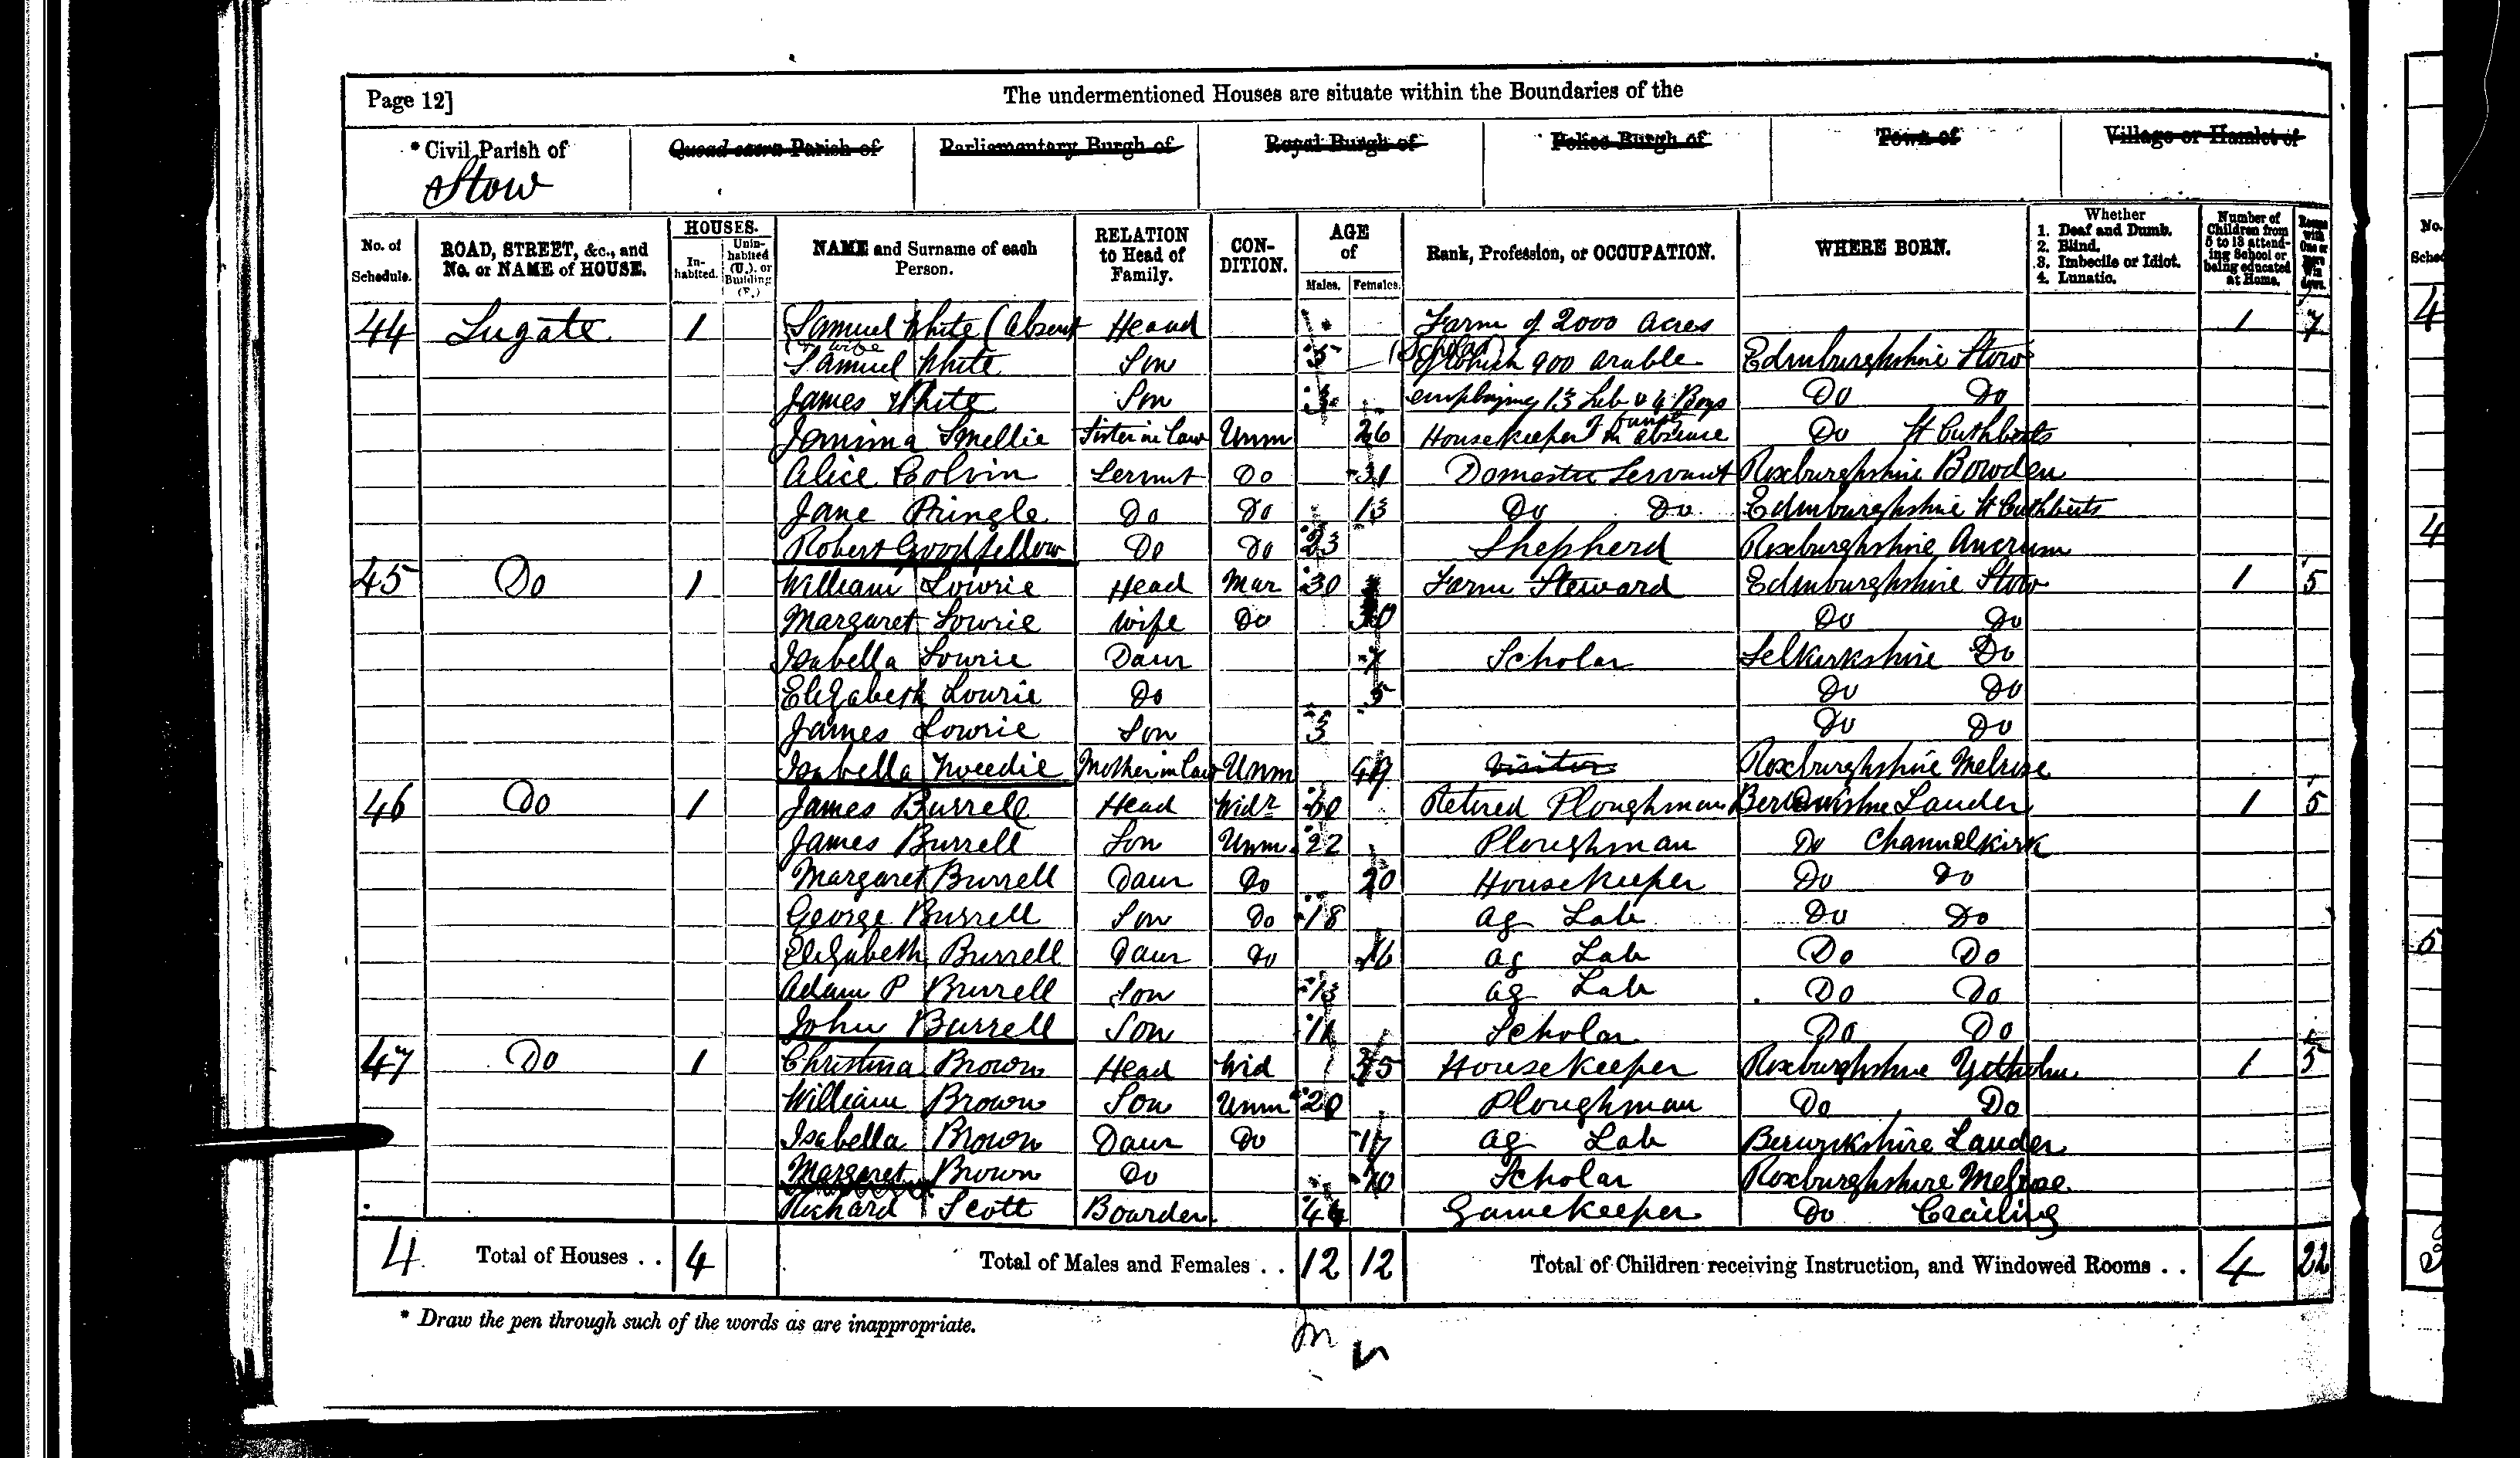 Page 12]
The undermentioned Houses are situate within the Boundaries of the
* Civil Parish of Quoad sacra Parish of Parliamentary Burgh of Royal Burgh of Police Burgh of Town of Village or Hamlet of
Stow
No. of Schedule. ROAD, STREET, &c., and No. or NAME of HOUSE. HOUSES. In-habited. Unin-habited (U.), or Building (B.) NAME and Surname of each Person. RELATION to Head of Family. CON-DITION. AGE of Males. Females. Rank, Profession, or OCCUPATION. WHERE BORN. Whether 1. Deaf and Dumb. 2. Blind. 3. Imbecile or Idiot. 4. Lunatic. Number of Children from 5 to 13 attend-ing School or being educated at Home. Rooms with One or more Win-dows.
44 Lugate 1 Samuel White (Absent Head Farm of 2000 acres 1 7
& wife
Samuel White Son 5 (Scholar) of which 900 arable Edinburghshire Stow
James White Son 3 employing 13 Lab & 4 Boys Do Do
Jemima Smellie Sister in law Unm 26 Housekeeper in absence Do St Cuthberts
Alice Colvin Servnt Do 31 Domestic Servant Roxburghshire Bowden
Jane Pringle Do Do 13 Do Do Edinburghshire St Cuthberts
Robert Goodfellow Do Do 23 Shepherd Roxburghshire Ancrum
45 Do 1 William Lowrie Head Mar 30 Farm Steward Edinburghshire Stow 1 5
Margaret Lowrie Wife Do 30 Do Do
Isabella Lowrie Daur 7 Scholar Selkirkshire Do
Elizabeth Lowrie Do 5 Do Do
James Lowrie Son 3 Do Do
Isabella Tweedie Mother in law Unm 49 Visitor Roxburghshire Melrose
46 Do 1 James Burrell Head Widr 60 Retired Ploughman Berwickshire Lauder 1 5
James Burrell Son Unm 22 Ploughman Do Channelkirk
Margaret Burrell Daur Do 20 Housekeeper Do Do
George Burrell Son Do 18 Ag Lab Do Do
Elizabeth Burrell Daur Do 16 Ag Lab Do Do
Adam P Burrell Son 13 Ag Lab Do Do
John Burrell Son 11 Scholar Do Do
47 Do 1 Christina Brown Head Wid 45 Housekeeper Roxburghshire Yetholm 1 5
William Brown Son Unm 20 Ploughman Do Do
Isabella Brown Daur Do 17 Ag Lab Berwickshire Lauder
Margaret Brown Do 10 Scholar Roxburghshire Melrose
Richard Scott Boarder 44 Gamekeeper Do Crailing
4 Total of Houses . . 4 Total of Males and Females . . 12 12 Total of Children receiving Instruction, and Windowed Rooms . . 4 22
* Draw the pen through such of the words as are inappropriate.